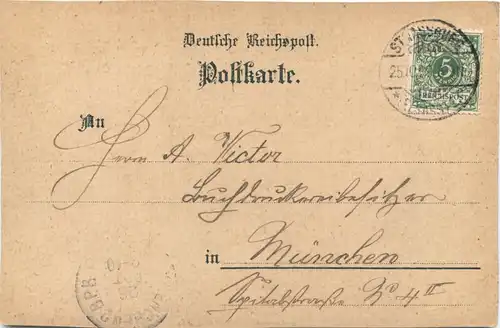 Deutsche Reichspost.
Postkarte.
STRASSBURG
5
An
Herrn A. Victor
Buchdruckereibesitzer
in München
Spitalstraße No 4 II